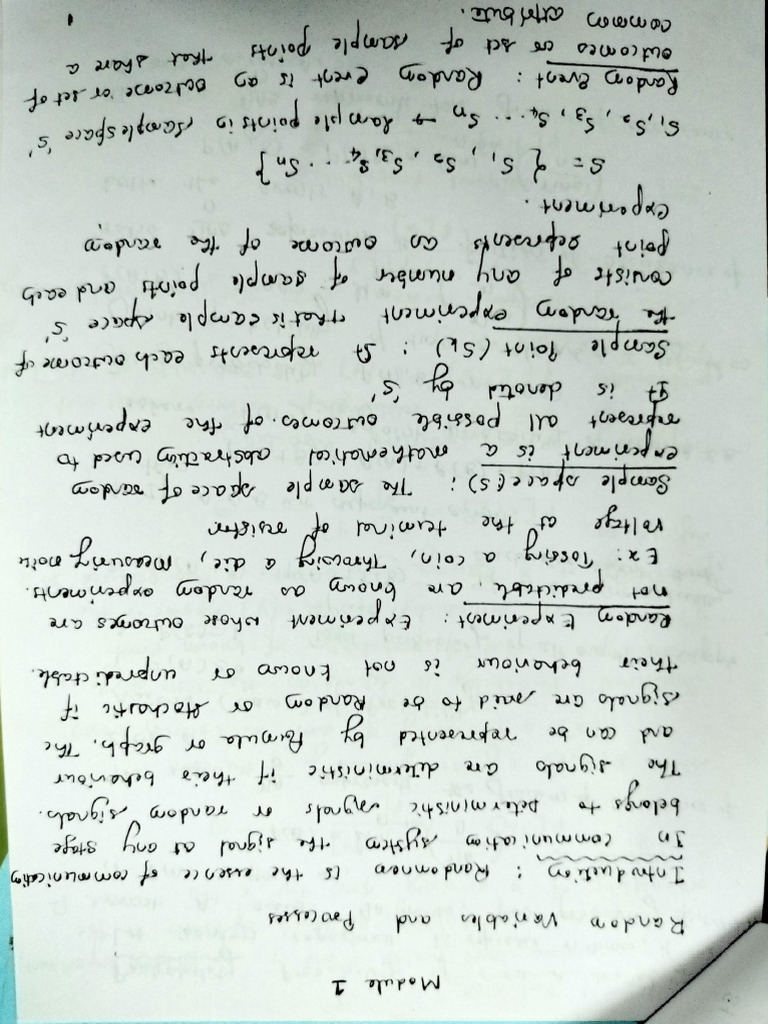 Module 1
Random Variables and Processes
Introduction : Randomness is the essence of communication
In communication system the signal at any stage
belongs to Deterministic signals or random signals.
The signals are deterministic if their behaviour
and can be represented by formula or graph. The
signals are said to be Random or stochastic if
their behaviour is not known or unpredictable.
Random Experiment : Experiment whose outcomes are
not predictable are known as random experiments.
Ex: Tossing a coin, Throwing a die, measuring noise
voltage at the terminal of resistor
Sample space (S) : The sample space of random
experiment is a mathematical abstraction used to
represent all possible outcomes of the experiment
It is denoted by 'S'
Sample Point (Sk) : It represents each outcome of
the random experiment that is sample space 'S'
consists of any number of sample points and each
point represents an outcome of the random
experiment.
S = { S1, S2, S3, S4 ... Sn }
S1, S2, S3, S4 ... Sn → sample points in sample space 'S'
Random Event : Random event is an outcome or set of
outcomes or set of sample points that share a
common attribute.
1